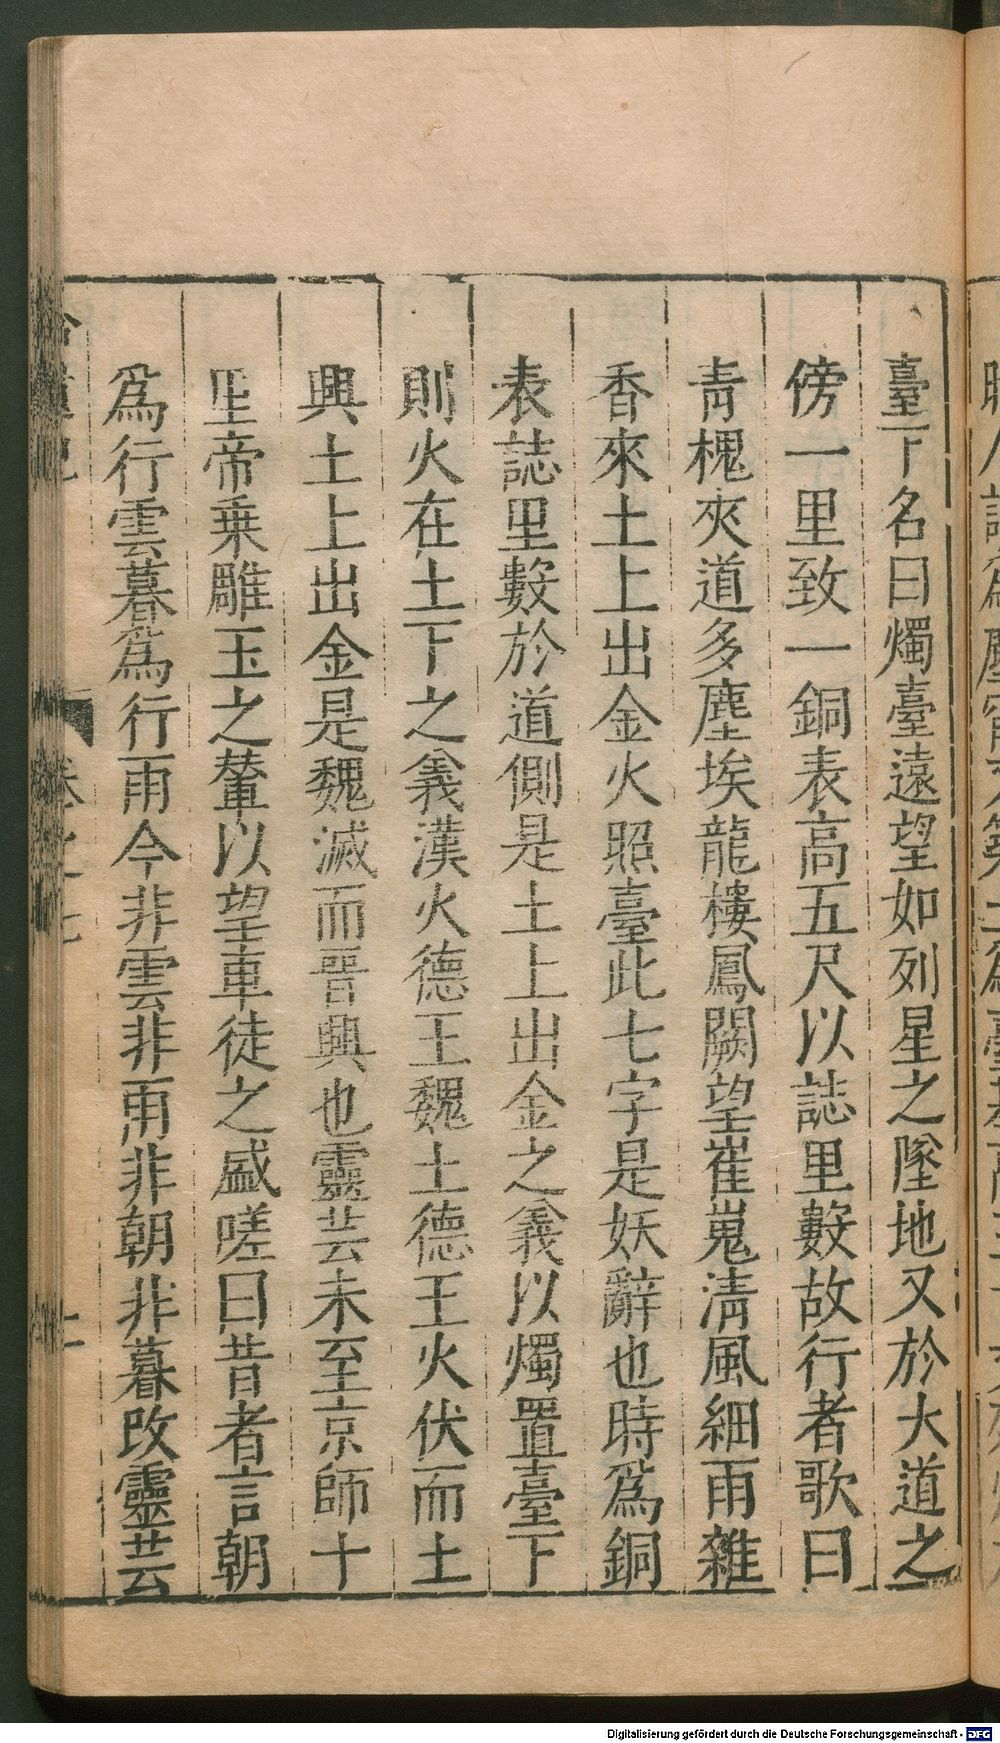 臺下名曰燭臺遠望如列星之墜地又於大道之
傍一里致一銅表高五尺以誌里數故行者歌曰
青槐夾道多塵埃龍樓鳳闕望崔嵬清風細雨雜
香來土上出金火照臺此七字是妖辭也時為銅
表誌里數於道側是土上出金之義以燭置臺下
則火在土下之義漢火德王魏土德王火伏而土
興土上出金是魏滅而晋興也靈芸未至京師十
里帝乗雕玉之輦以望車徒之盛嗟曰昔者言朝
為行雲暮為行雨今非雲非雨非朝非暮改靈芸
卷之七
Digitalisierung gefördert durch die Deutsche Forschungsgemeinschaft - DFG